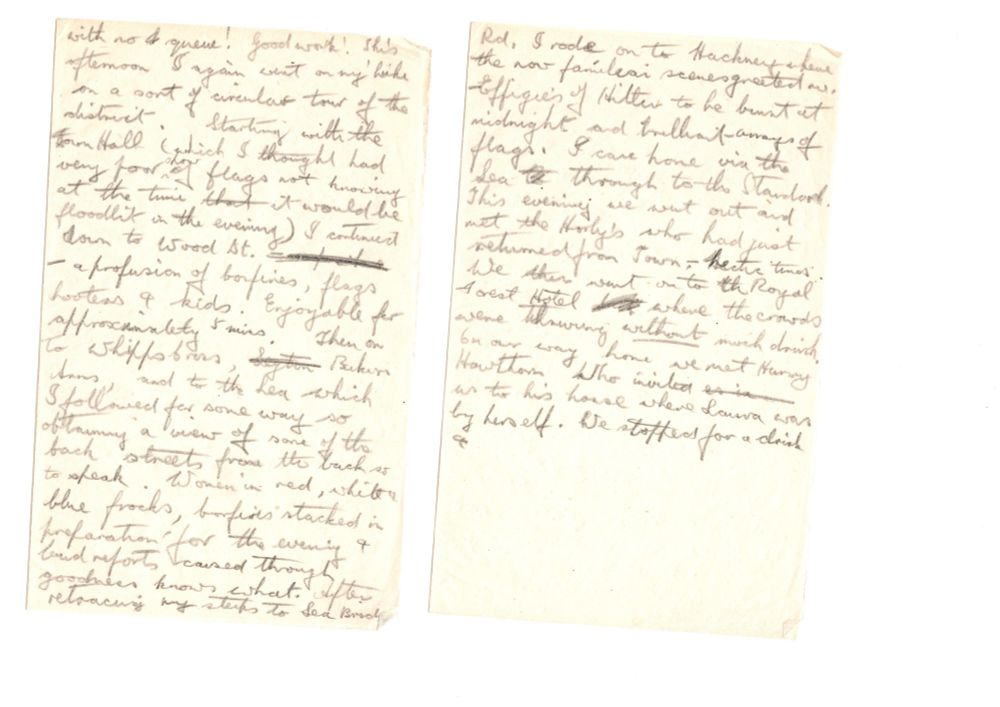 with no queue! Good work! This
afternoon I again went on my bike
on a sort of circular tour of the
district. Starting with the
Town Hall (which I thought had
very poor show of flags not knowing
at the time that it would be
floodlit in the evening) I continued
down to Wood St.
— a profusion of bonfires, flags
hooters & kids. Enjoyable for
approximately 5 mins. Then on
to Whipps Cross, Leyton Bakers
Arms, and to the Lea which
I followed for some way so
obtaining a view of some of the
back streets from the back so
to speak. Women in red, white &
blue frocks, bonfires stacked in
preparation for the evening &
loud reports caused through
goodness knows what. After
retracing my steps to Lea Bridge
Rd. I rode on to Hackney where
the now familiar scenes greeted me.
Effigies of Hitler to be burnt at
midnight and brilliant arrays of
flags. I came home via the
Lea through to the
This evening we went out and
met the who had just
returned from Town – hectic times.
We then went on to the Royal
Forest Hotel where the crowds
were thronging without much drink.
On our way home we met Harvey
Hawthorn who invited
us to his house where Laura was
by herself. We stopped for a drink
&